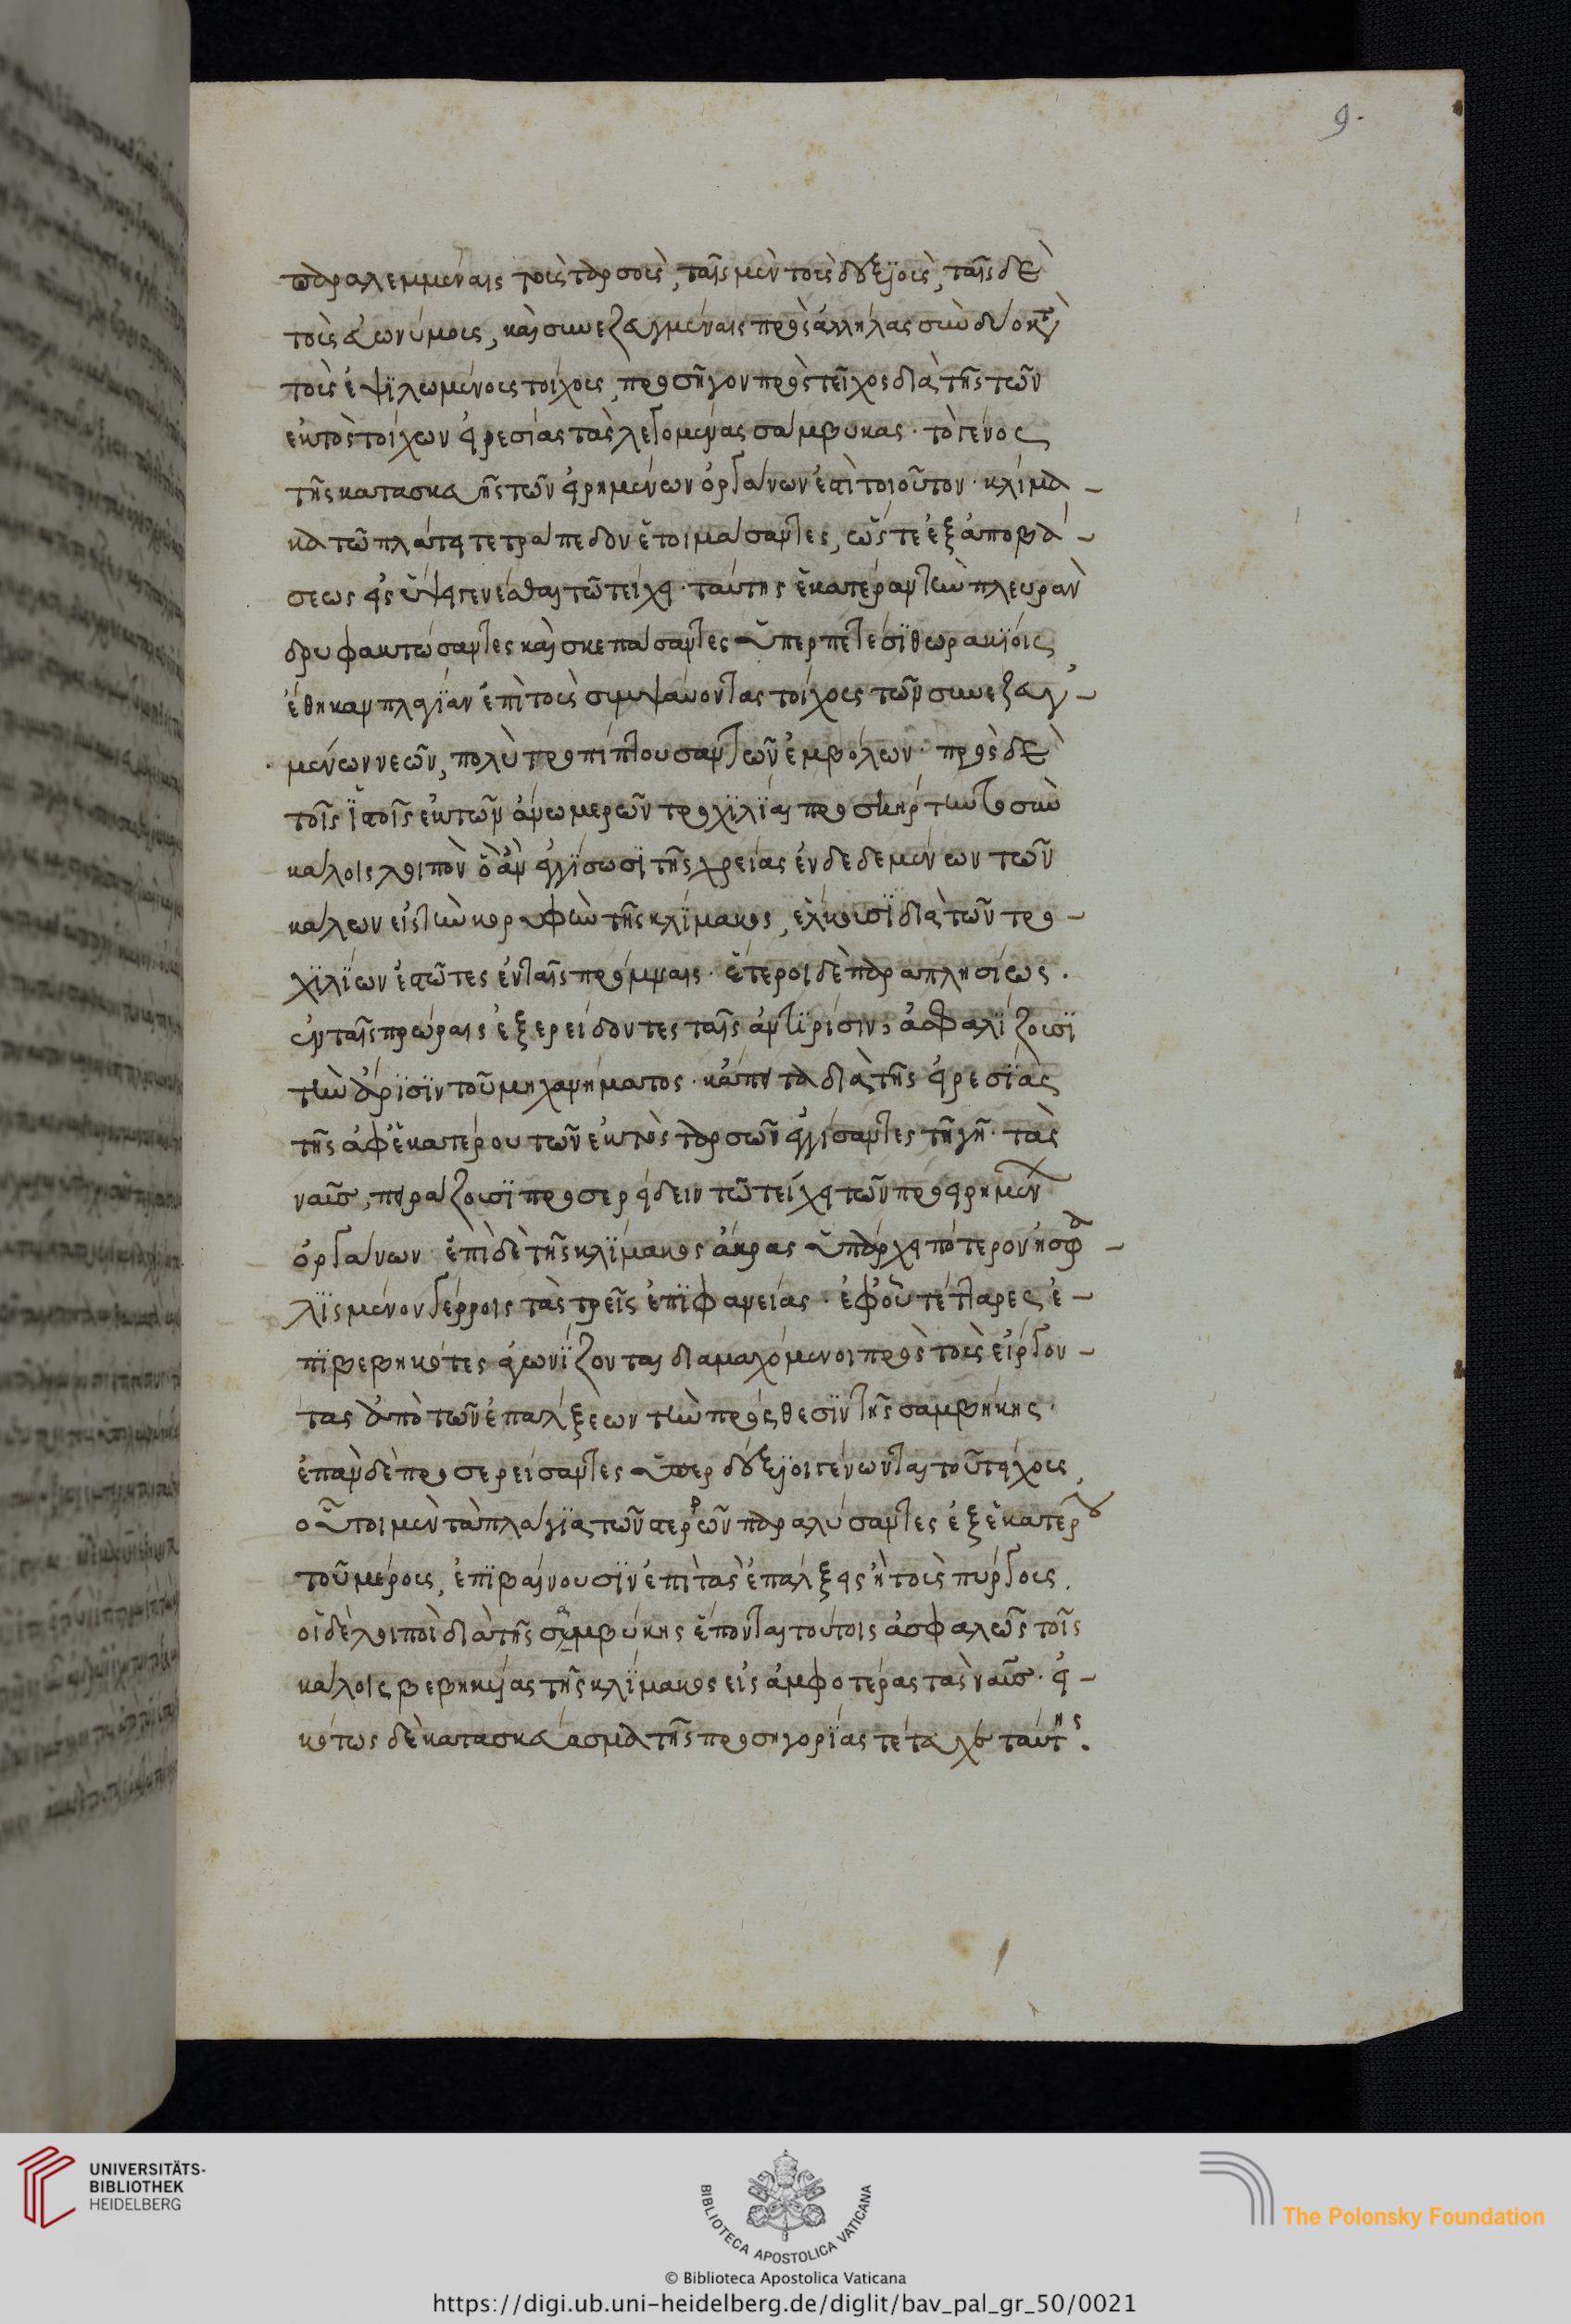 9.
παραλελυμμέναις τοὺς ταρσοὺς, ταῖς μὲν τοὺς δεξϊοὺς, ταῖς δὲ
τοὺς εὐωνύμους, καὶ συνεζευγμέναις πρὸς ἀλλήλας σὺν δύο κατὰ
τοὺς ἐψϊλωμένους τοίχους, προσῆγον πρὸς τεῖχος διὰ τῆς τῶν
ἐκτὸς τοίχων εἰρεσίας τὰς λεγομένας σαμβύκας· τὸ γένος
τῆς κατασκευῆς τῶν εἰρημένων ὀργάνων ἐστὶ τοιοῦτον· κλίμα-
κα τῶ πλάτει τετράπεδον ἑτοιμάσαντες, ὥστε ἐξ ἀποβά-
σεως εἰς ὕψει γενέσθαι τῶ τείχει· ταύτης ἑκατέραν τὴν πλευρὰν
δρυφακτώσαντες καὶ σκεπάσαντες ὑπερπετέσϊ θωρακϊοις
ἔθηκαν πλαγϊαν ἐπὶ τοὺς συμψαύοντας τοίχους τῶν συνεζευγ-
μένων νεῶν, πολὺ προπίπτουσαν τῶν ἐμβόλων· πρὸς δὲ
τοῖς ϊστοῖς ἐκ τῶν ἄνω μερῶν τροχϊλϊαι προσήρτηντο σὺν
κάλοις λοιπὸν ὅταν ἐγγϊσωσϊ τῆς χρείας ἐνδεδεμένων τῶν
κάλων εἰς τὴν κορυφὴν τῆς κλϊμακος, ἕλκουσϊ διὰ τῶν τρο-
χϊλϊων ἑστῶτες ἐν ταῖς πρύμναις· ἕτεροι δὲ παραπλησίως.
ἐν ταῖς πρώραις ἐξερείδοντες ταῖς ἀντϊρισιν, ἀσφαλϊζουσϊ
τὴν ἄρϊσϊν τοῦ μηχανήματος· κἄπειτα διὰ τῆς εἰρεσϊας
τῆς ἀφ' ἑκατέρου τῶν ἐκτὸς ταρσῶν ἐγγίσαντες τῆ γῆ· τὰς
ναῦς, πειράζουσϊ προσερείδειν τῶ τείχει τῶν προειρημένων
ὀργάνων· ἐπὶ δὲ τῆς κλϊμακος ἄκρας ὑπάρχει πότερον ἠσφα-
λϊσμένον γέρροις τὰς τρεῖς ἐπϊφανείας· ἐφ' οὗ τέτταρες ἐ-
πϊβεβηκότες ἀγωνϊζονται διαμαχόμενοι πρὸς τοὺς εἴργον-
τας ἀπὸ τῶν ἐπάλξεων τὴν πρόσθεσϊν τῆς σαμβήκης.
ἐπὰν δὲ προσερείσαντες ὑπερδέξϊοι γένωνται τοῦ τείχους,
οὗτοι μὲν τὰ πλάγϊα τῶν γερρῶν παραλύσαντες ἐξ ἑκατέρου
τοῦ μέρους, ἐπϊβαίνουσϊν ἐπὶ τὰς ἐπάλξεις ἢ τοὺς πύργους.
οἱ δὲ λοιποὶ διὰ τῆς σαμβύκης ἕπονται τούτοις ἀσφαλῶς τοῖς
κάλοις βεβηκυίας τῆς κλϊμακος εἰς ἀμφοτέρας τὰς ναῦς· εἰ-
κότως δὲ κατασκεύασμα τῆς προσηγορϊας τέτευχε ταύτης.
UNIVERSITÄTS-
BIBLIOTHEK
HEIDELBERG
BIBLIOTECA APOSTOLICA VATICANA
The Polonsky Foundation
© Biblioteca Apostolica Vaticana
https://digi.ub.uni-heidelberg.de/diglit/bav_pal_gr_50/0021